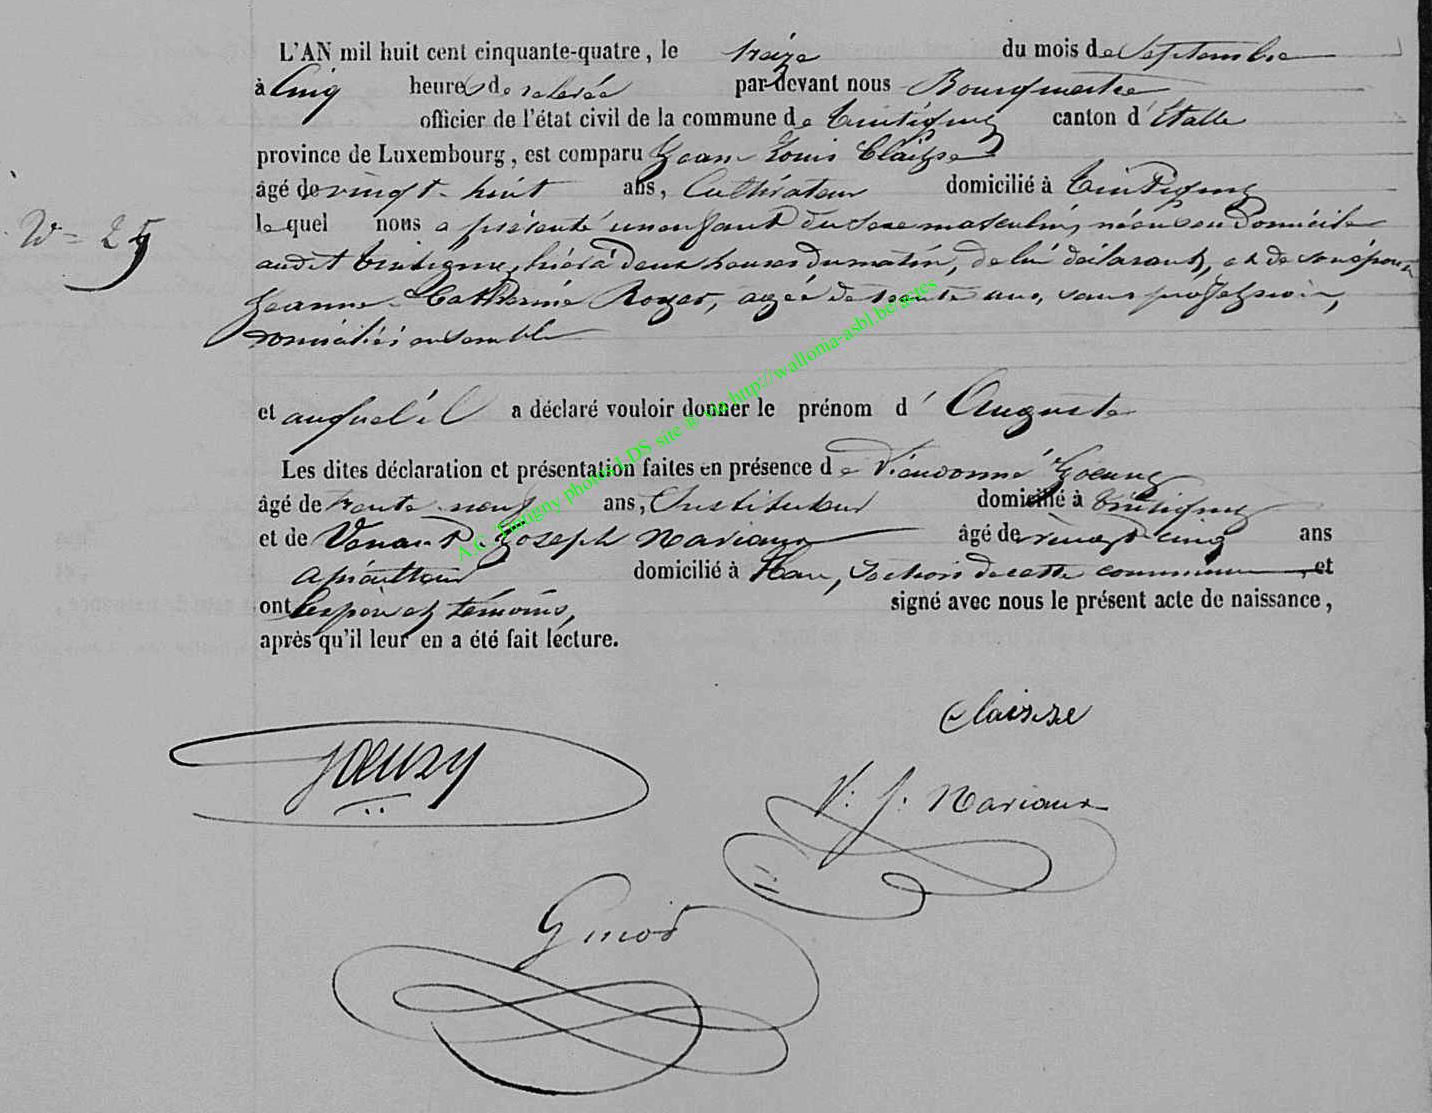 L'AN mil huit cent cinquante-quatre, le treize du mois de Septembre
à Cinq heures de relevée par-devant nous Bourgmestre
officier de l'état civil de la commune de Tintigny canton d'Etalle
province de Luxembourg, est comparu Jean Louis Claisse
âgé de vingt-huit ans, Cultivateur domicilié à Tintigny
N° 25
lequel nous a présenté un enfant du sexe masculin, né en son domicile
audit Tintigny, hier à deux heures du matin, de lui déclarant, et de son épouse
Jeanne Catherine Royer, agée de trente ans, sans profession,
domiciliés ensemble
et auquel il a déclaré vouloir donner le prénom d' Auguste
Les dites déclaration et présentation faites en présence de Dieudonné
âgé de trente neuf ans, Instituteur domicilié à Tintigny
et de Venant Joseph Mariaux âgé de vingt cinq ans
domicilié à Han, section de cette commune, et
ont le père et témoins, signé avec nous le présent acte de naissance,
après qu'il leur en a été fait lecture.
Claisse
V: J: Mariaux
A.C. Tintigny photos LDS site @ via http://wallonia-asbl.be/actes